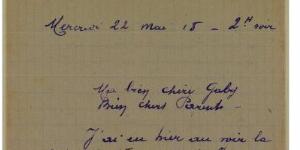 Mercredi 22 Mai 18 - 2H soir
Ma bien chère Gaby
Bien chers Parents -
J'ai eu hier au soir la